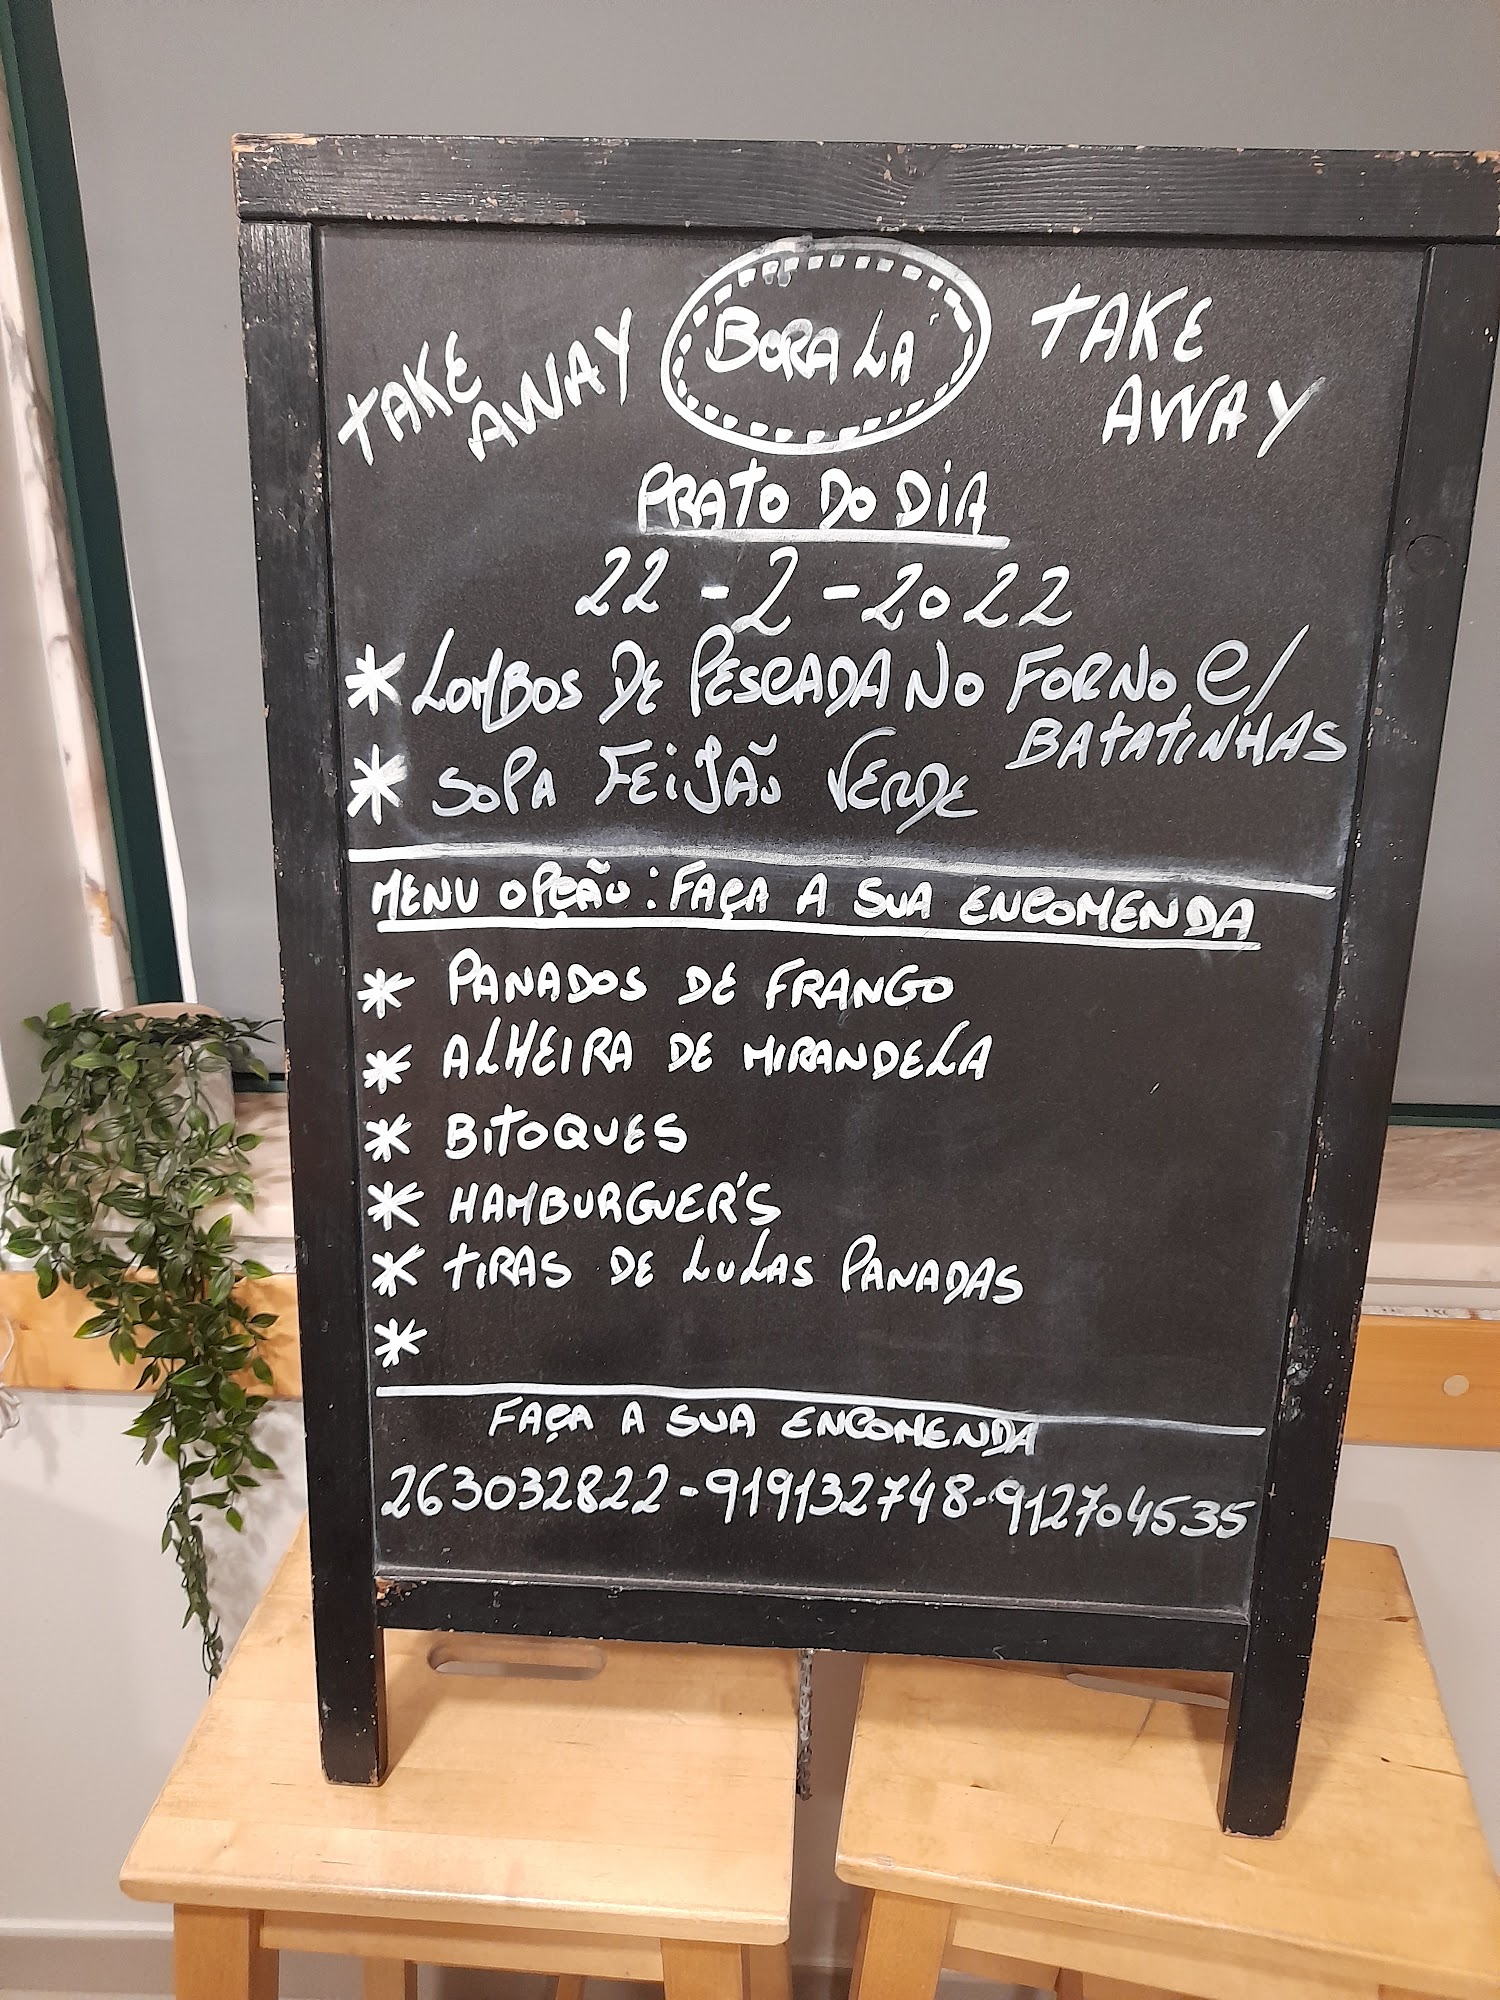 TAKE AWAY
BORA LÁ
TAKE AWAY
PRATO DO DIA
22-2-2022
* LOMBOS DE PESCADA NO FORNO C/
BATATINHAS
* SOPA FEIJÃO VERDE
MENU OPÇÃO: FAÇA A SUA ENCOMENDA
* PANADOS DE FRANGO
* ALHEIRA DE MIRANDELA
* BITOQUES
* HAMBURGUER'S
* TIRAS DE LULAS PANADAS
*
FAÇA A SUA ENCOMENDA
263032822-919132748-912704535